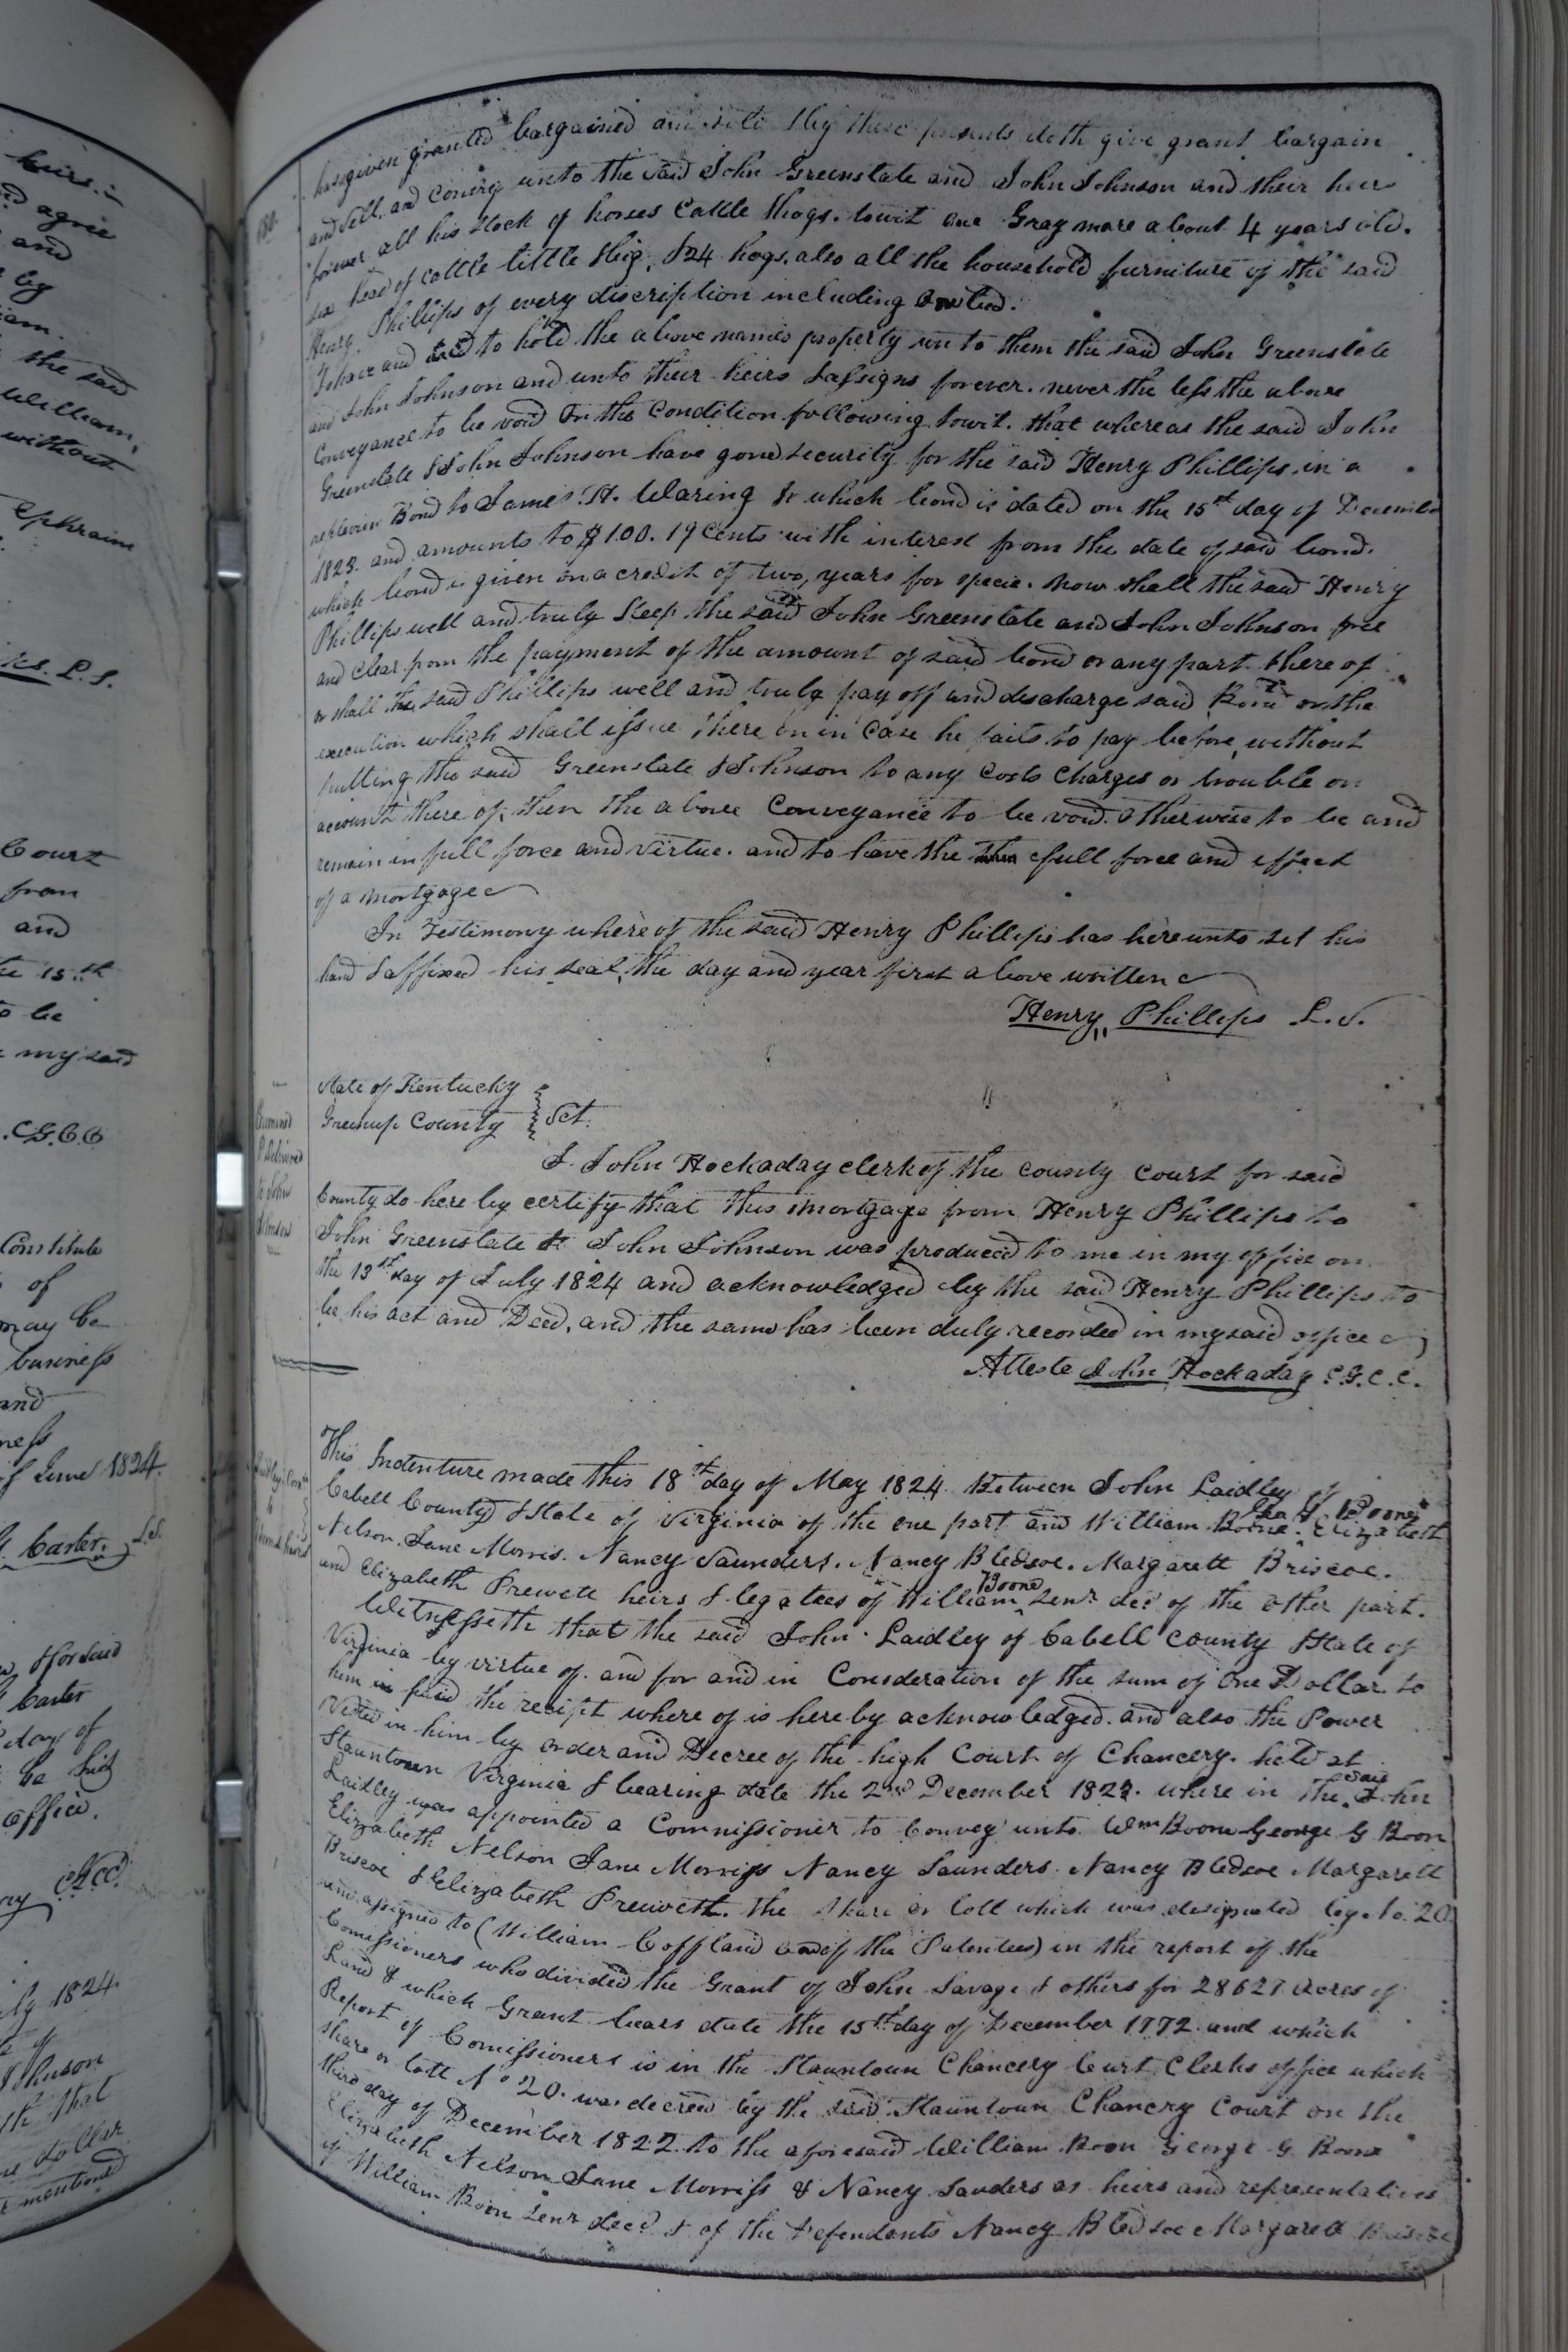 heirs.
agree
and
by
the said
William,
without
Ephraim
L.S.
Court
from
and
15.th
to be
my said
C.G.C.C
Constitute
of
may be
business
and
ness
of June 1824.
Carter. L.S.
for said
Carter
day of
be his
office.
July 1824.
Johnson
that
dollar
mentioned
180.
has given granted bargained and sold & by these presents doth give grant bargain
and Sell, and Convey unto the said John Greenslate and John Johnson and their heirs
forever all his stock of horses Cattle & hogs. towit one Gray mare about 4 years old.
six head of cattle little & big, & 24 hogs, also all the household furniture of the said
Henry Phillips of every discription including
To have and to hold the above named property un to them the said John Greenslate
and John Johnson and unto their heirs & assigns forever. never the less the above
Conveyance to be void On the Condition following towit. that whereas the said John
Greenslate & John Johnson have gone security for the said Henry Phillips in a
replevin Bond to James H. Waring & which bond is dated on the 15th day of December
1823. and amounts to $100. 19 Cents with interest from the date of said bond.
which bond is given on a credit of two, years for specie. now shall the said Henry
Phillips well and truly Keep the said John Greenslate and John Johnson free
and clear from the payment of the amount of said bond or any part there of
or shall the said Phillips well and truly pay off and discharge said Bond or the
execution which shall issue there on in Case he fails to pay before without
putting the said Greenslate & Johnson to any Costs Charges or trouble on
account there of, then the above Conveyance to be void. Otherwise to be and
remain in full force and virtue. and to have the full force and effect
of a mortgage
In Testimony where of the said Henry Phillips has here unto set his
hand & affixed his seal, the day and year first above written
Henry Phillips L.S.
State of Kentucky
Greenup County } Sct.
Examined
& Delivered
to John
Johnson
I. John Hockaday clerk of the county court for said
County do here by certify that this mortgage from Henry Phillips to
John Greenslate & John Johnson was produced to me in my office on
the 13th day of July 1824 and acknowledged by the said Henry Phillips to
be his act and Deed, and the same has been duly recorded in my said office
Atteste John Hockaday C.G.C.C.
This Indenture made this 18th day of May 1824 Between John Laidley of
Cabell County & State of Virginia of the one part and William Boone. Geo G Boone Elizabeth
Nelson. Jane Morris. Nancy Saunders. Nancy Bledsoe. Margarett Briscoe.
and Elizabeth Prewete heirs & legatees of William Boone Senr decd of the other part.
Witnesseth that the said John Laidley of Cabell County State of
Virginia by virtue of. and for and in Consideration of the sum of One Dollar to
him in paid the receipt where of is here by acknowledged. and also the Power
Vested in him by order and Decree of the high Court of Chancery. held at
Stauntown Virginia & bearing date the 2nd December 1823. where in the said John
Laidley was appointed a Commissioner to Convey unto Wm Boone George G Boon
Elizabeth Nelson Jane Morriss Nancy Saunders. Nancy Bledsoe Margarett
Briscoe & Elizabeth Prewett. the share or lott which was designated by. No. 20
and assigned to (William Coffland one of the Patentees) in the report of the
Comissioners who divided the Grant of John Savage & others for 28627 Acres of
Land & which Grant bears date the 15th day of December 1772 and which
Report of Comissioners is in the Stauntoun Chancery Court Clerks office which
share or lott No 20. was decreed by the said Stauntoun Chancery Court on the
third day of December 1822 to the aforesaid William Boon George G Boone
Elizabeth Nelson Jane Morriss & Nancy Sauders as heirs and representatives
of William Boon Senr decd & of the Defendants Nancy Bledsoe Margarett Briscoe